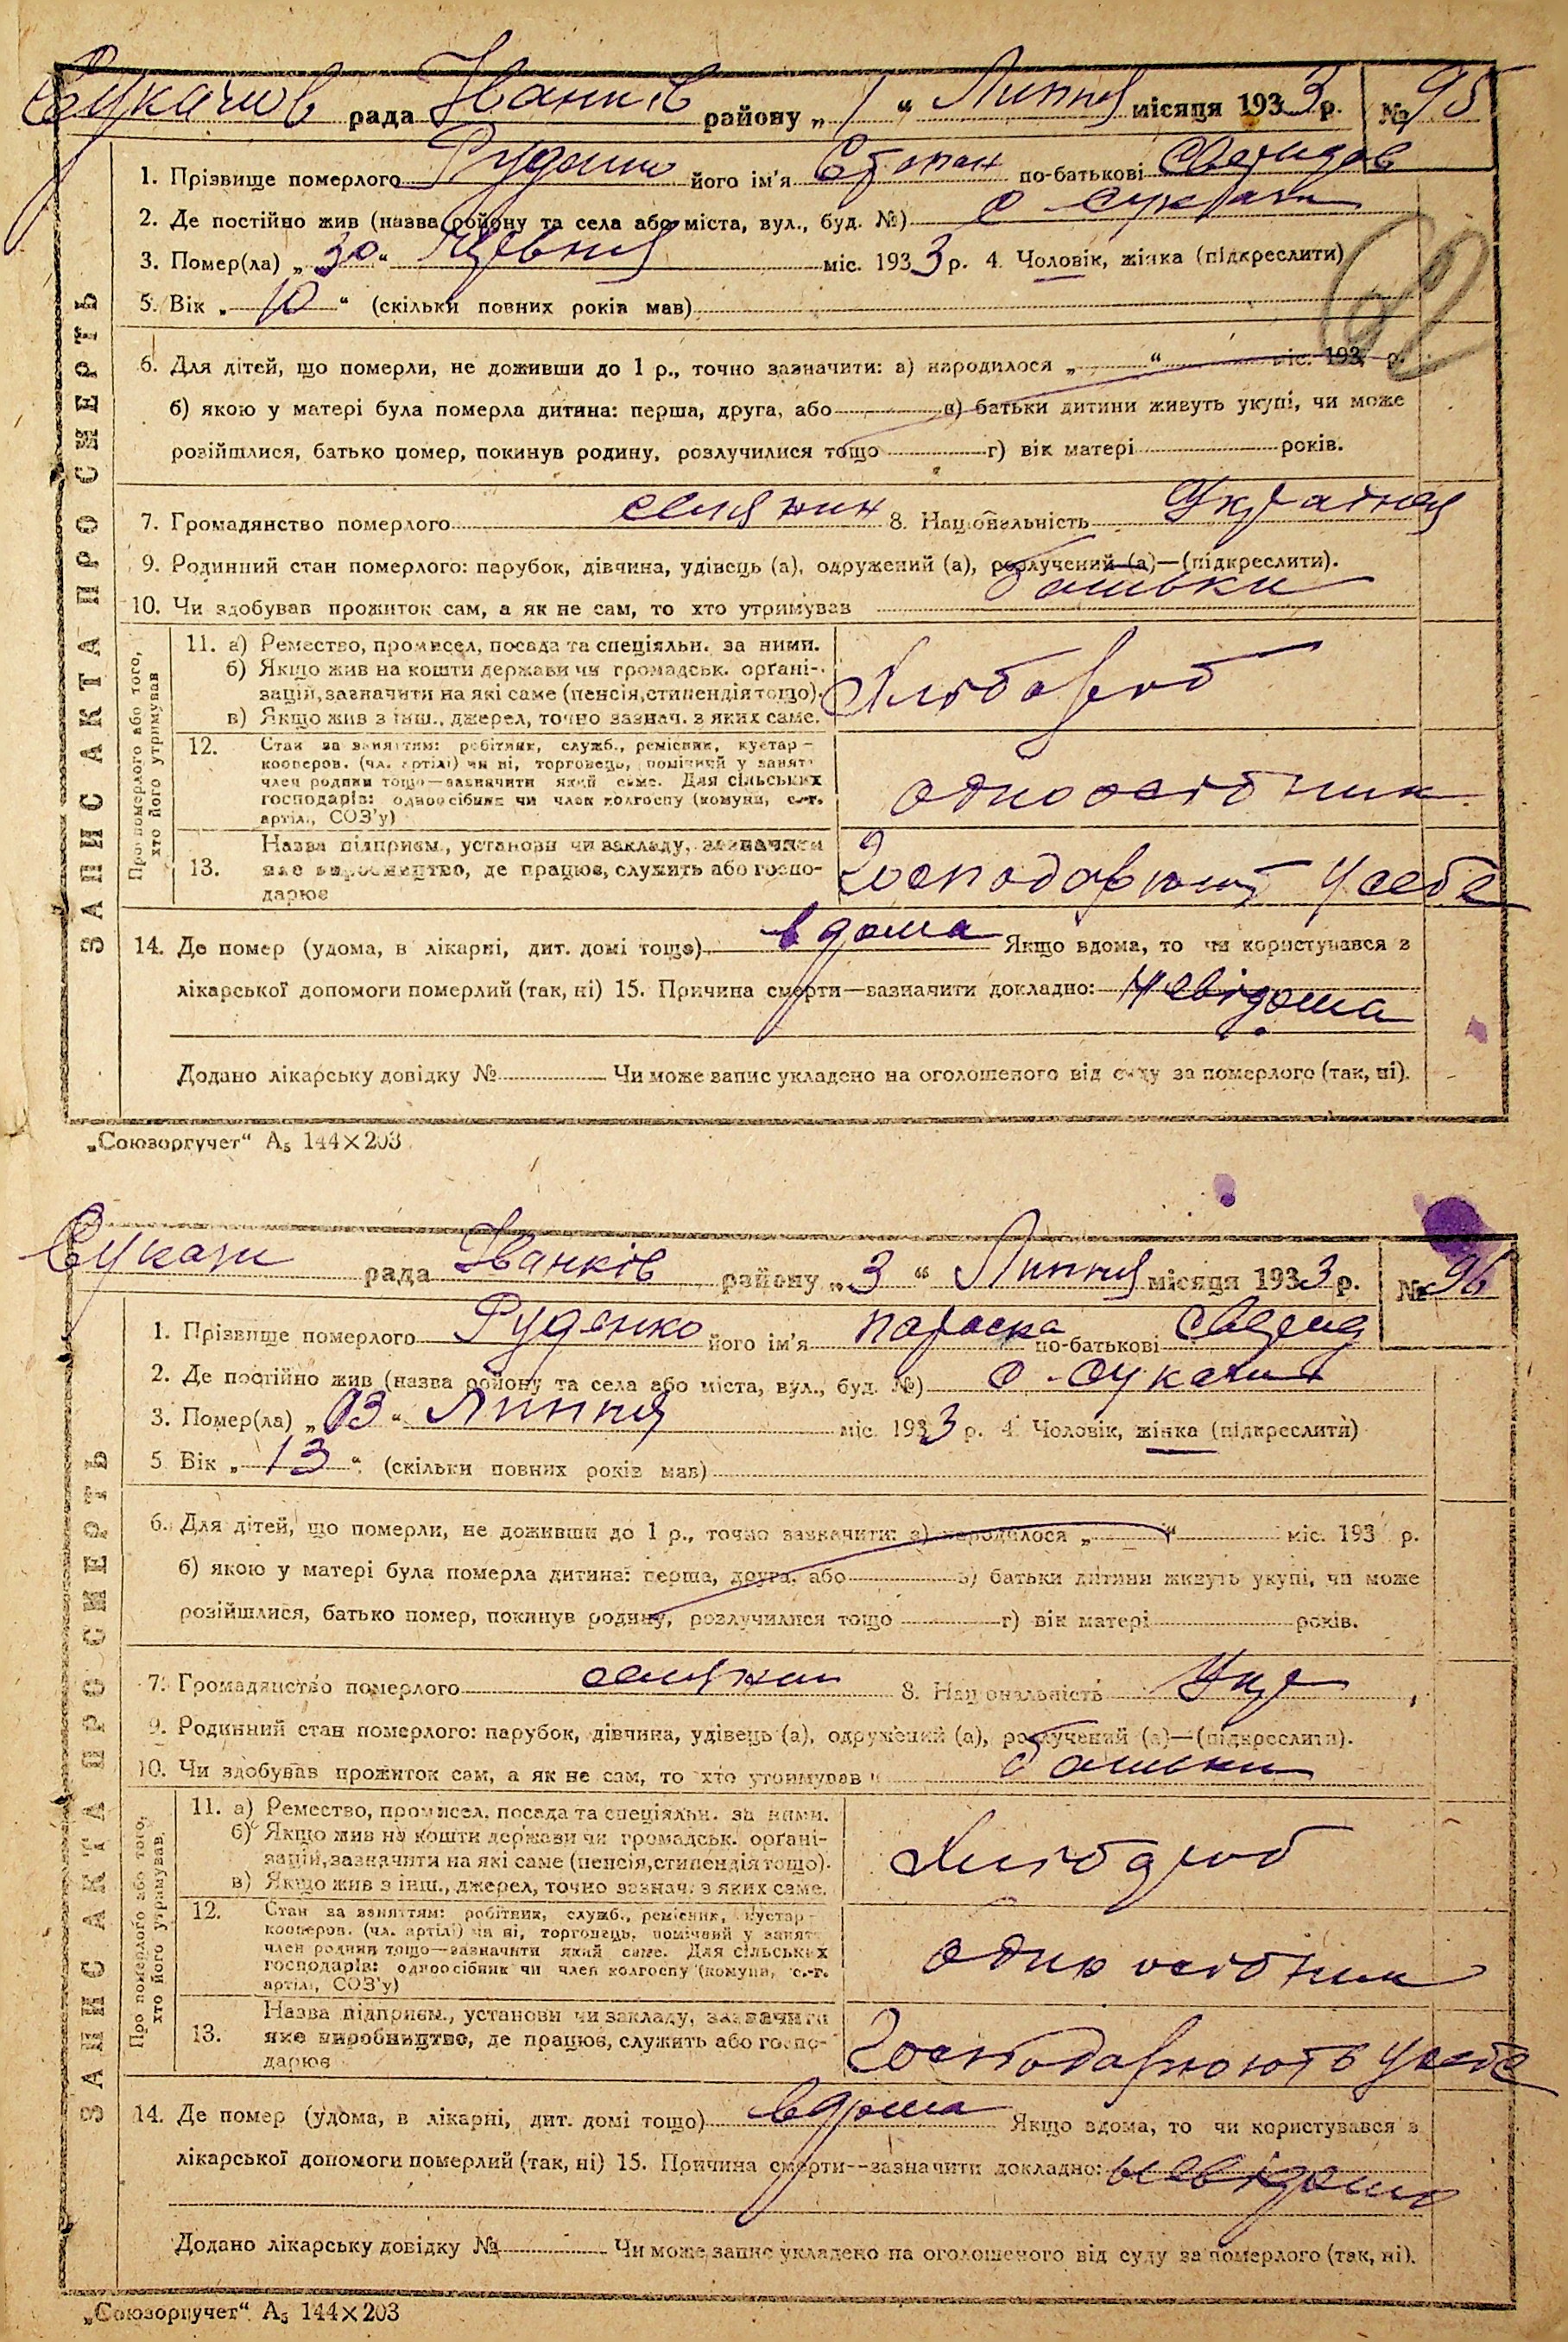 Сукачов рада Іванків району „1“ Липня місяця 1933 р. № 95
1. Прізвище померлого Руденко його ім'я Степан по-батькові
2. Де постійно жив (назва району та села або міста, вул., буд. №) с. Сукачи
3. Помер(ла) „30“ Червня міс. 1933 р. 4. Чоловік, жінка (підкреслити)
5. Вік „10“ (скільки повних років мав)
6. Для дітей, що померли, не доживши до 1 р., точно зазначити: а) народилося „ “ міс. 193 р.
б) якою у матері була померла дитина: перша, друга, або в) батьки дитини живуть укупі, чи може
розійшлися, батько помер, покинув родину, розлучилися тощо г) вік матері років.
7. Громадянство померлого селянин 8. Національність
9. Родинний стан померлого: парубок, дівчина, удівець (а), одружений (а), розлучений (а)—(підкреслити).
10. Чи здобував прожиток сам, а як не сам, то хто утримував батьки
ЗАПИС АКТА ПРО СМЕРТЬ
Про померлого або того,
хто його утримував
11. а) Ремество, промисел, посада та спеціяльн. за ними.
б) Якщо жив на кошти держави чи громадськ. орґані-
зацій, зазначити на які саме (пенсія, стипендія тощо).
в) Якщо жив з інш., джерел, точно зазнач. з яких саме.
Хлібороб
12. Стан за заняттям: робітник, служб., ремісник, кустар-
кооперов. (чл. артілі) чи ні, торговець, помічний у занят.
член родини тощо—зазначити який саме. Для сільських
господарів: одноосібник чи член колгоспу (комуни, с.-г.
артіл., СОЗ'у)
одноосібник
13. Назва підприєм., установи чи закладу, зазначити
яке виробництво, де працює, служить або госпо-
дарює
Господарюють у себе
14. Де помер (удома, в лікарні, дит. домі тощо) вдома Якщо вдома, то чи користувався з
лікарської допомоги померлий (так, ні) 15. Причина смерти—зазначити докладно: невідома
Додано лікарську довідку № Чи може запис укладено на оголошеного від суду за померлого (так, ні).
„Союзоргучет“ А₅ 144×203
Сукачи рада Іванків району „3“ Липня місяця 1933 р. № 96
1. Прізвище померлого Руденко його ім'я Параска по-батькові
2. Де постійно жив (назва району та села або міста, вул., буд. №) с. Сукачи
3. Помер(ла) „03“ Липня міс. 1933 р. 4. Чоловік, жінка (підкреслити)
5. Вік „13“ (скільки повних років мав)
6. Для дітей, що померли, не доживши до 1 р., точно зазначити: а) народилося „ “ міс. 193 р.
б) якою у матері була померла дитина: перша, друга, або в) батьки дитини живуть укупі, чи може
розійшлися, батько помер, покинув родину, розлучилися тощо г) вік матері років.
7. Громадянство померлого селянин 8. Національність Укр
9. Родинний стан померлого: парубок, дівчина, удівець (а), одружений (а), розлучений (а)—(підкреслити).
10. Чи здобував прожиток сам, а як не сам, то хто утримував батьки
ЗАПИС АКТА ПРО СМЕРТЬ
Про померлого або того,
хто його утримував.
11. а) Ремество, промисел, посада та спеціяльн. за ними.
б) Якщо жив на кошти держави чи громадськ. орґані-
зацій, зазначити на які саме (пенсія, стипендія тощо).
в) Якщо жив з інш., джерел, точно зазнач. з яких саме.
Хлібороб
12. Стан за заняттям: робітник, служб., ремісник, кустар-
кооперов. (чл. артілі) чи ні, торговець, помічний у занят.
член родини тощо—зазначити який саме. Для сільських
господарів: одноосібник чи член колгоспу (комуни, с.-г.
артіл., СОЗ'у)
одноосібник
13. Назва підприєм., установи чи закладу, зазначити
яке виробництво, де працює, служить або госпо-
дарює
Господарюють у себе
14. Де помер (удома, в лікарні, дит. домі тощо) вдома Якщо вдома, то чи користувався з
лікарської допомоги померлий (так, ні) 15. Причина смерти—зазначити докладно: невідома
Додано лікарську довідку № Чи може запис укладено на оголошеного від суду за померлого (так, ні).
„Союзоргучет“ А₅ 144×203